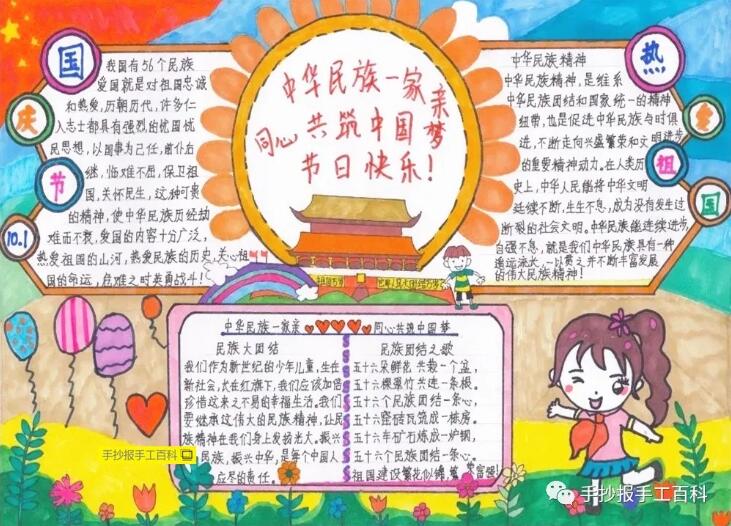 国
庆
节
10.1
我国有56个民族
爱国就是对祖国忠诚
和热爱,历朝历代,许多仁
人志士都具有强烈的忧国忧
民思想,以国事为己任,前仆后
继,临难不屈,保卫祖
国,关怀民生,这种可贵
的精神,使中华民族历经劫
难而不衰,爱国的内容十分广泛,
热爱祖国的山河,热爱民族的历史,关心祖
国的命运,危难之时英勇战斗!
中华民族一家亲
同心共筑中国梦
节日快乐!
热
爱
祖
国
中华民族精神
中华民族精神,是维系
中华民族团结和国家统一的精神
纽带,也是促进中华民族与时俱
进,不断走向兴盛繁荣和文明进步
的重要精神动力。在人类历
史上,中华人民能将中华文明
延续不断,生生不息,成为没有发生过
断裂的社会文明。中华民族能连续进步,
自强不息,就是我们中华民族具有一种
遥远流光、一以贯之并不断丰富发展
的伟大民族精神!
中华民族一家亲
同心共筑中国梦
民族大团结
我们作为新世纪的少年儿童,生在
新社会,长在红旗下,我们应该加倍
珍惜这来之不易的幸福生活。我们
要继承这伟大的民族精神,让民
族精神在我们身上发扬光大。振兴
民族,振兴中华,是每个中国人
应尽的责任。
民族团结之歌
五十六朵鲜花共栽一个盆,
五十六棵翠竹共连一条根。
五十六个民族团结一条心,
五十六窑砖瓦筑成一栋房。
五十六车矿石炼成一炉钢,
五十六个民族团结一条心。
祖国建设繁花似锦,
富强!
手抄报手工百科
手抄报手工百科